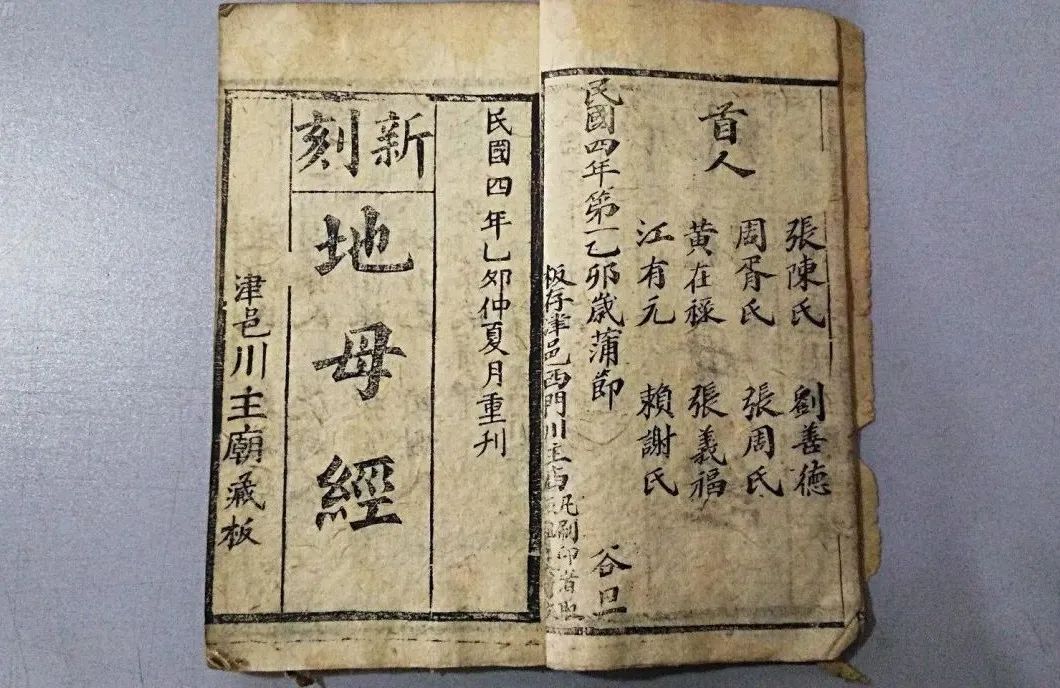 首人
張陳氏 劉善德
周胥氏 張周氏
黄在祿 張義福
江有元 賴謝氏
民國四年第一乙卯歲蒲節 谷旦
板存津邑西門川主庙凡刷印者
民國四年乙夘仲夏月重刊
新刻
地母經
津邑川主廟藏板